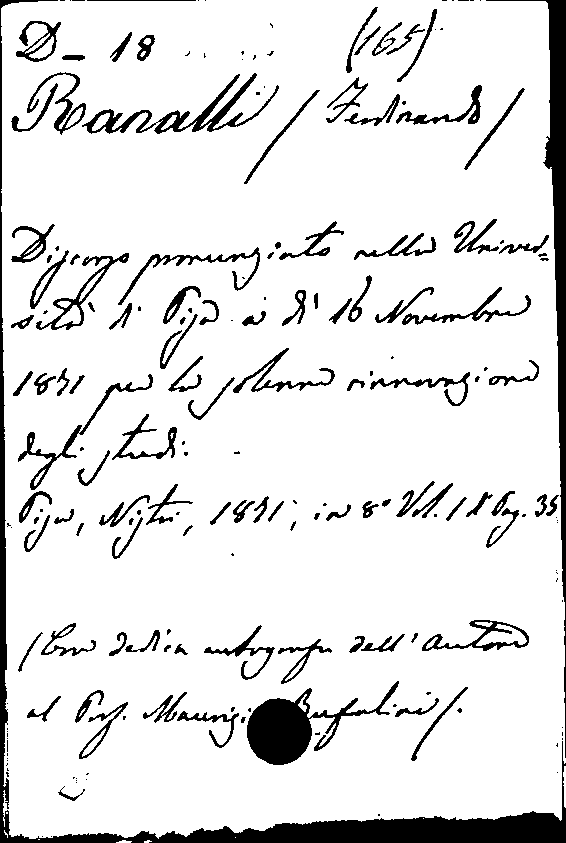 D_ 18 (165)
Ranalli / Ferdinando /
Discorso pronunziato nella Univer=
sità di Pisa a dì 16 Novembre
1871 per la solenne rinnovazione
degli studi.
Pisa, Nistri, 1871, in 8° Vol. 1 Pag. 35
/ Con dedica autografa dell'Autore
al Prof. Maurizio Bufalini /.